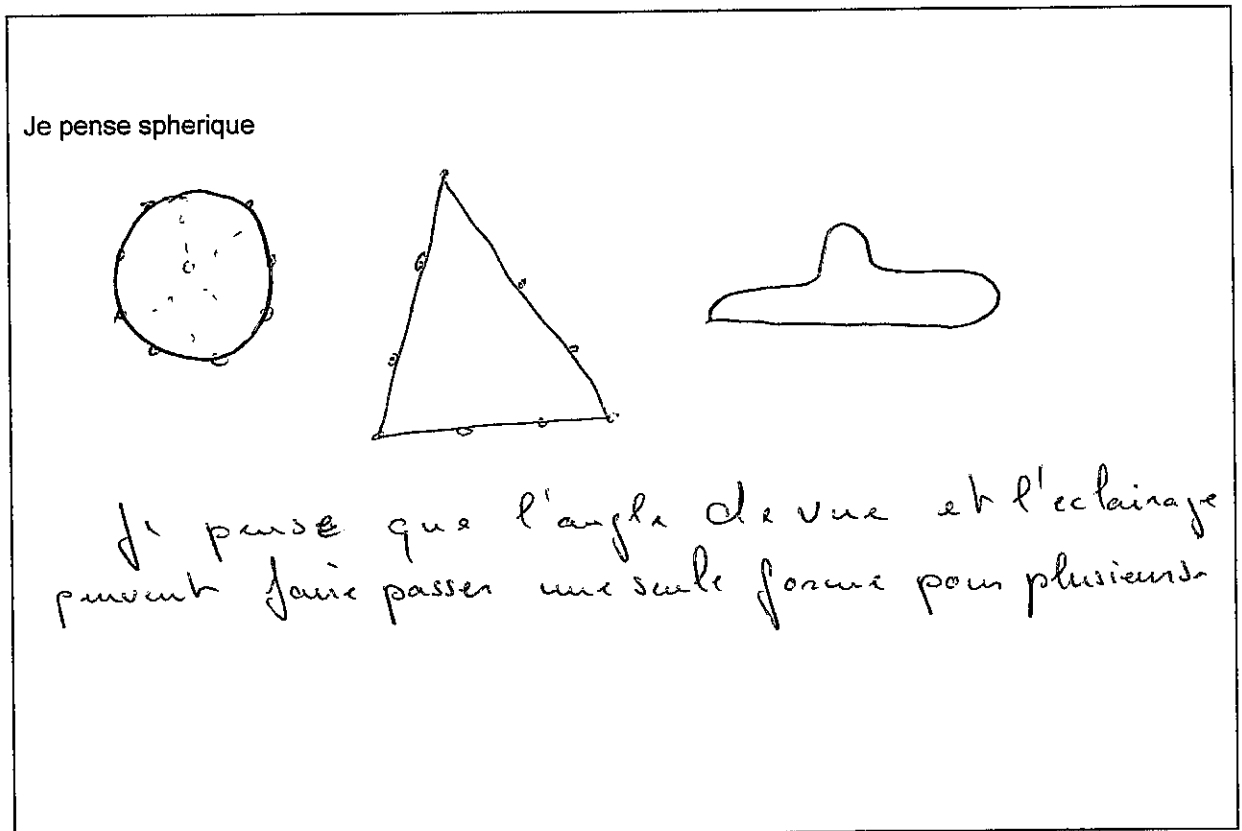 Je pense spherique
Je pense que l'angle de vue et l'eclairage
peuvent faire passer une seule forme pour plusieurs.